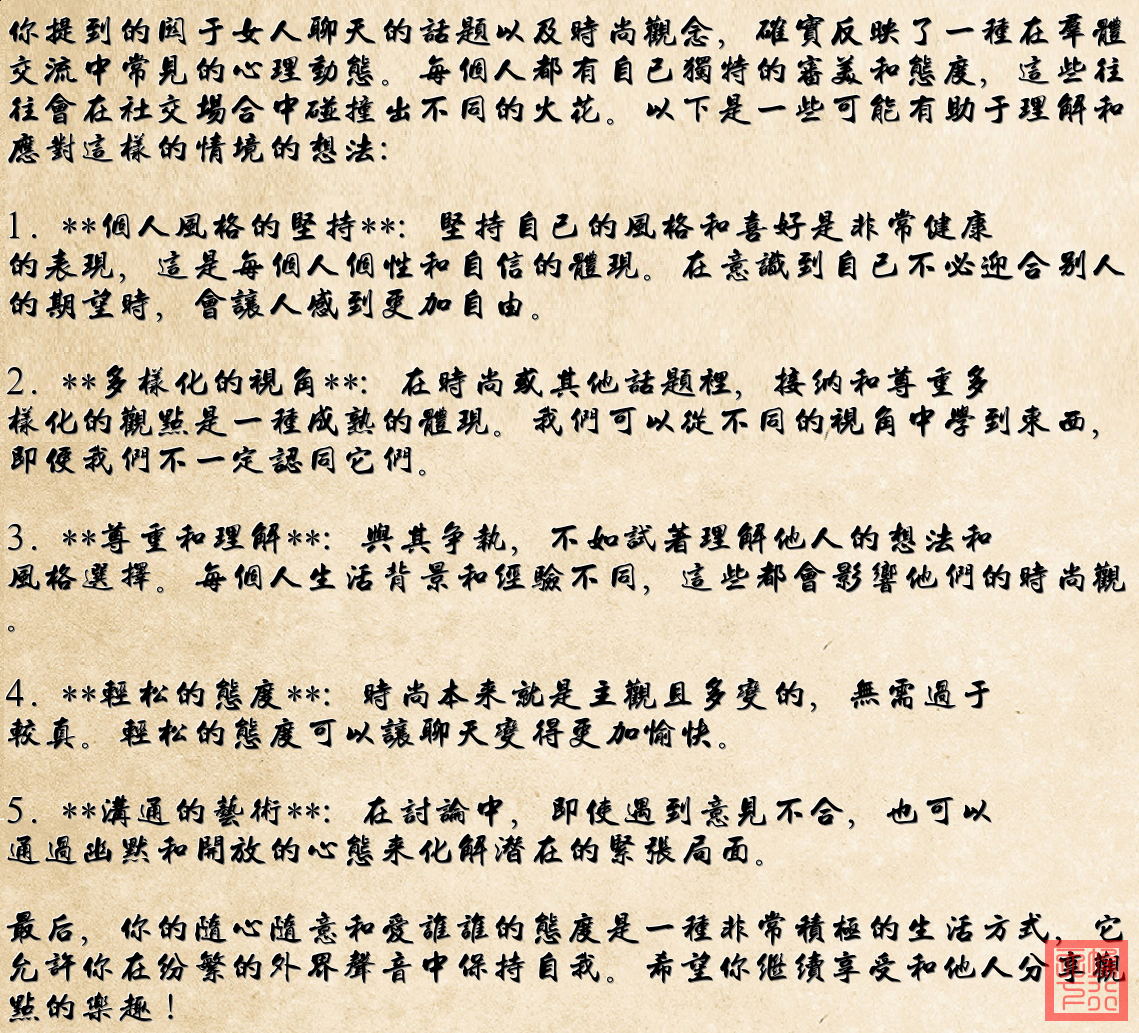 你提到的関于女人聊天的話題以及時尚觀念，確實反映了一種在羣體
交流中常見的心理動態。每個人都有自己獨特的審美和態度，這些往
往會在社交場合中碰撞出不同的火花。以下是一些可能有助于理解和
應對這樣的情境的想法：
1. **個人風格的堅持**：堅持自己的風格和喜好是非常健康
的表現，這是每個人個性和自信的體現。在意識到自己不必迎合別人
的期望時，會讓人感到更加自由。
2. **多樣化的視角**：在時尚或其他話題裡，接納和尊重多
樣化的觀點是一種成熟的體現。我們可以從不同的視角中學到東西，
即使我們不一定認同它們。
3. **尊重和理解**：與其争執，不如試著理解他人的想法和
風格選擇。每個人生活背景和經驗不同，這些都會影響他們的時尚觀
。
4. **輕松的態度**：時尚本来就是主觀且多變的，無需過于
較真。輕松的態度可以讓聊天變得更加愉快。
5. **溝通的藝術**：在討論中，即使遇到意見不合，也可以
通過幽默和開放的心態来化解潛在的緊張局面。
最后，你的隨心隨意和愛誰誰的態度是一種非常積極的生活方式，它
允許你在紛繁的外界聲音中保持自我。希望你繼續享受和他人分享觀
點的樂趣！